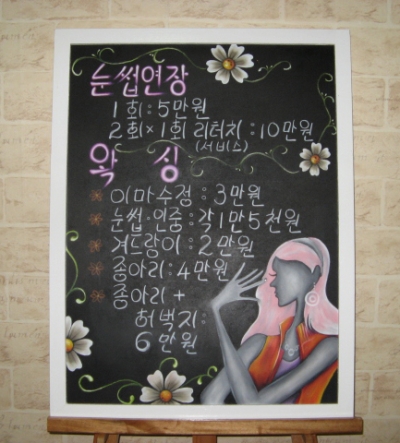 눈썹연장
1회:5만원
2회×1회 리터치:10만원
(서비스)
왁싱
이마수정:3만원
눈썹·인중:각1만5천원
겨드랑이:2만원
종아리:4만원
종아리+
허벅지:
6만원